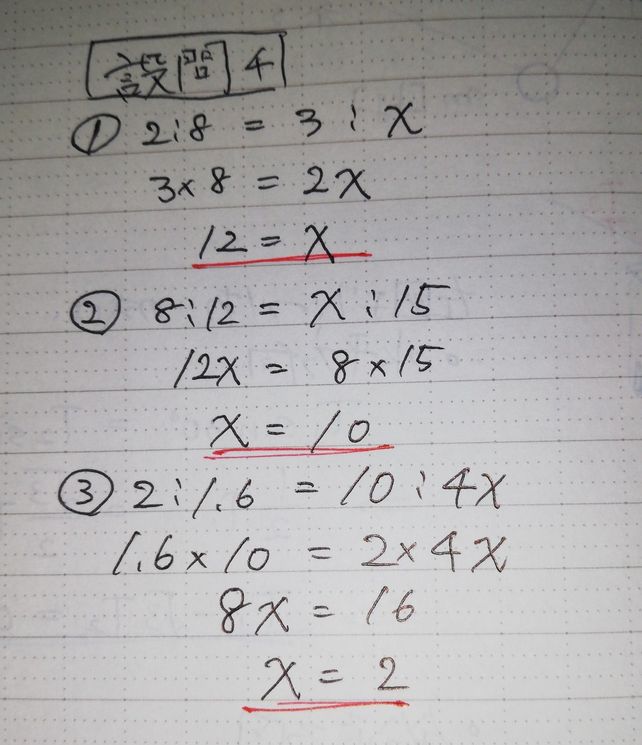 設問4
① 2:8 = 3:x
3×8 = 2x
12 = x
② 8:12 = x:15
12x = 8×15
x = 10
③ 2:1.6 = 10:4x
1.6×10 = 2×4x
8x = 16
x = 2